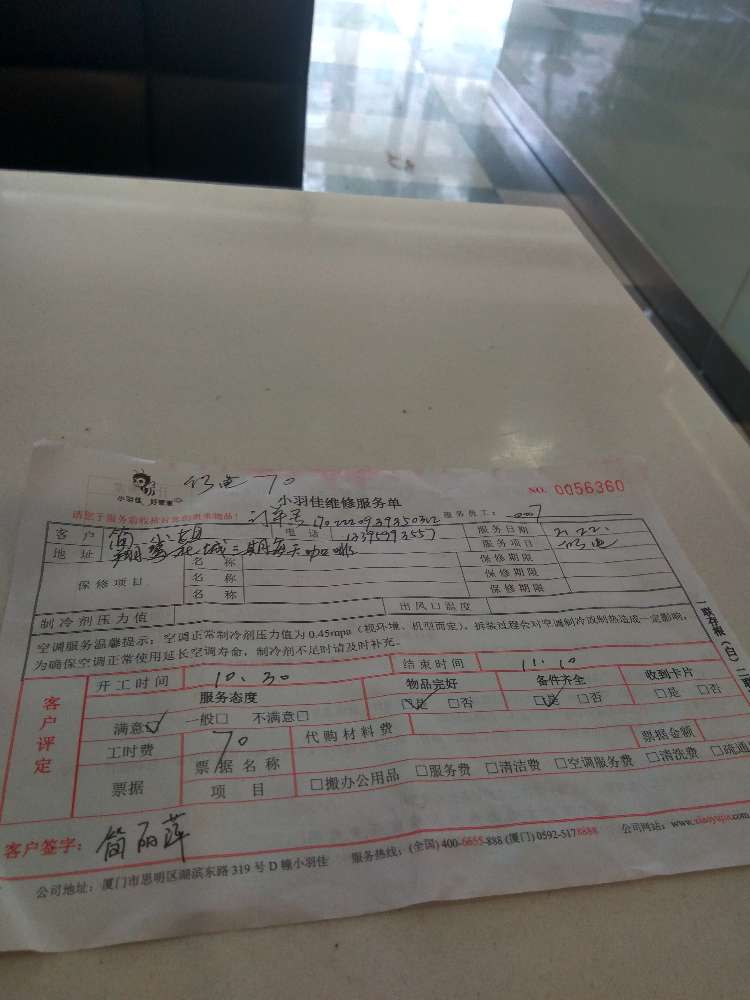 70
小羽佳 好管家
小羽佳维修服务单
NO. 0056360
服务员工:
客户 简小姐 电话 13395993557 服务日期 2.22.
地址 翔鹭花城三期每天咖啡 服务项目
保修项目 名称 保修期限
名称 保修期限
名称 保修期限
制冷剂压力值 出风口温度
空调服务温馨提示:空调正常制冷剂压力值为0.45mpa(视环境、机型而定),拆装过程会对空调制冷或制热造成一定影响,
为确保空调正常使用延长空调寿命,制冷剂不足时请及时补充。
客户评定
开工时间 10.30 结束时间 11.10
服务态度 物品完好 备件齐全 收到卡片
满意☑ 一般□ 不满意□ ☑是 □否 ☑是 □否 □是 □否
工时费 70 代购材料费 票据金额
票据 票据名称
项目 □搬办公用品 □服务费 □清洁费 □空调服务费 □清洗费 □疏通
客户签字: 简丽萍
公司地址:厦门市思明区湖滨东路319号D幢小羽佳 服务热线:(全国)400-6655-888 (厦门)0592-5178888 公司网站:www.xiaoyujia.com
一联存根(白)二联